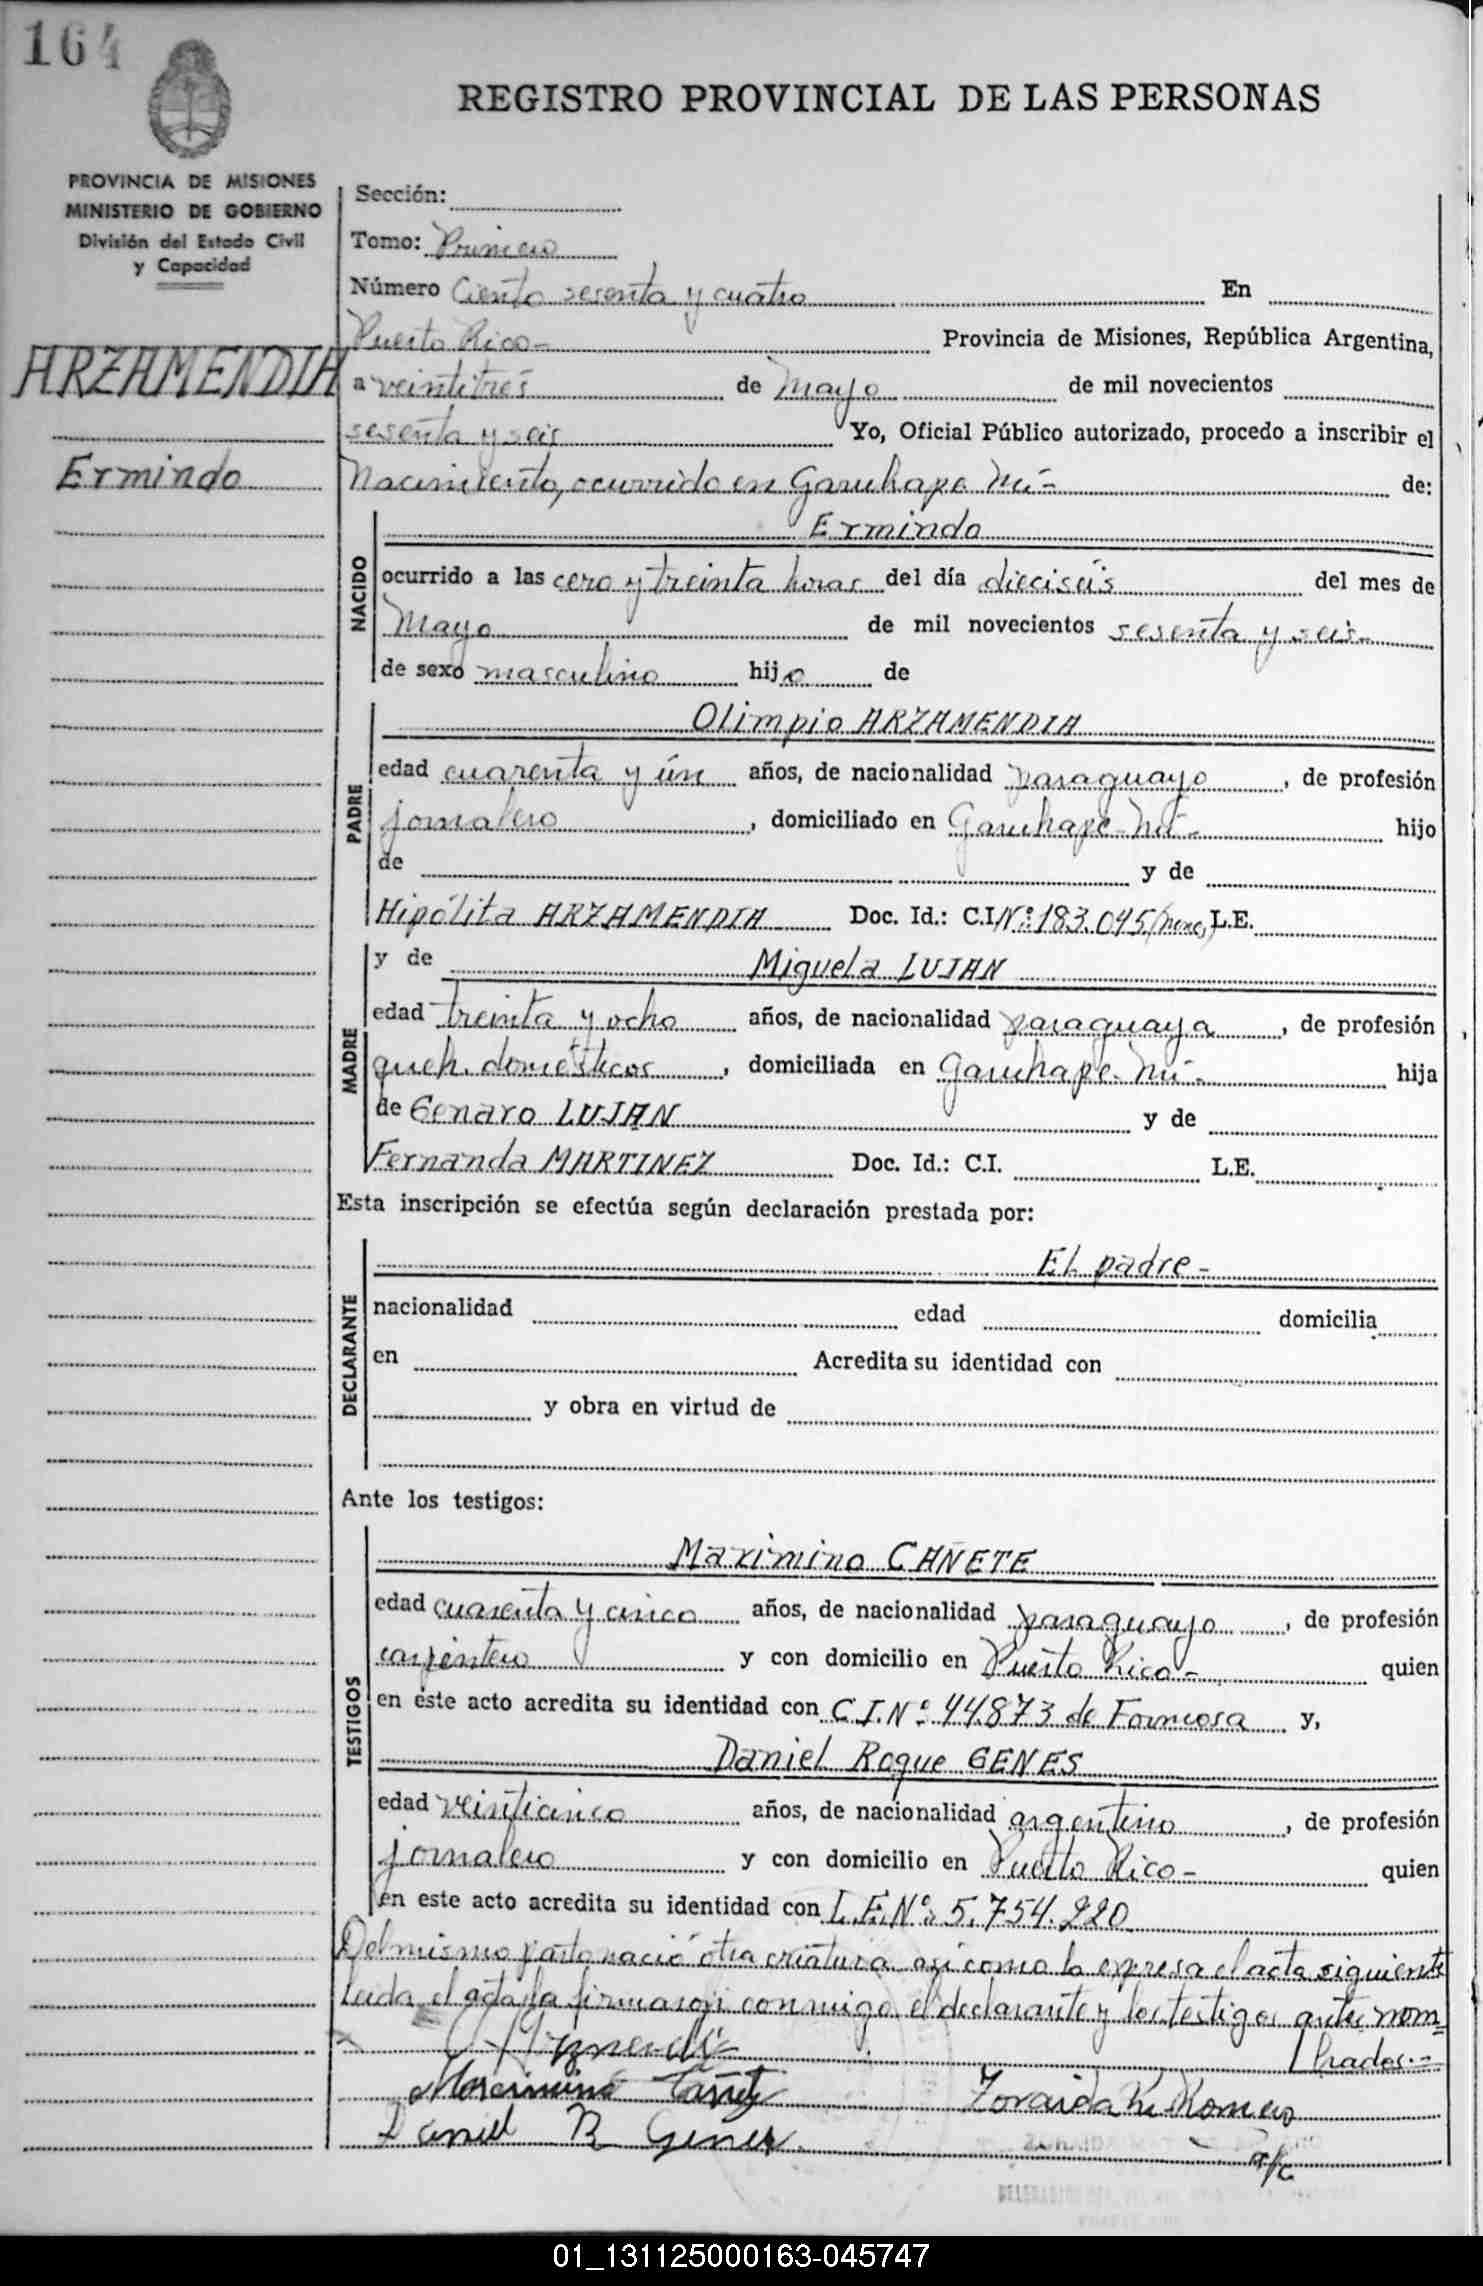 164
REGISTRO PROVINCIAL DE LAS PERSONAS
PROVINCIA DE MISIONES
MINISTERIO DE GOBIERNO
División del Estado Civil
y Capacidad
ARZAMENDIA
Ermindo
Sección:
Tomo: Primero
Número Ciento sesenta y cuatro En
Puerto Rico- Provincia de Misiones, República Argentina,
a veintitrés de Mayo de mil novecientos
sesenta y seis Yo, Oficial Público autorizado, procedo a inscribir el
Nacimiento, ocurrido en Garuhape Mí- de:
NACIDO
Ermindo
ocurrido a las cero y treinta horas del día dieciséis del mes de
Mayo de mil novecientos sesenta y seis-
de sexo masculino hijo de
PADRE
Olimpio ARZAMENDIA
edad cuarenta y ún años, de nacionalidad paraguayo, de profesión
jornalero, domiciliado en Garuhape-Mí- hijo
de y de
Hipólita ARZAMENDIA Doc. Id.: C.I. Nº:183.045 L.E.
MADRE
y de Miguela LUJAN
edad treinta y ocho años, de nacionalidad paraguaya, de profesión
queh. domésticos, domiciliada en Garuhape-Mí- hija
de Genaro LUJAN y de
Fernanda MARTINEZ Doc. Id.: C.I. L.E.
Esta inscripción se efectúa según declaración prestada por:
DECLARANTE
El padre-
nacionalidad edad domicilia
en Acredita su identidad con
y obra en virtud de
Ante los testigos:
TESTIGOS
Maximino CAÑETE
edad cuarenta y cinco años, de nacionalidad paraguayo, de profesión
carpintero y con domicilio en Puerto Rico- quien
en este acto acredita su identidad con C.I.Nº: 44.873 de Formosa y,
Daniel Roque GENES
edad veinticinco años, de nacionalidad argentino, de profesión
jornalero y con domicilio en Puerto Rico- quien
en este acto acredita su identidad con L.E.Nº: 5.754.220
Del mismo parto nació otra criatura así como lo expresa el acta siguiente
Leída el acta la firmaron conmigo el declarante y los testigos antes nom=
brados.-
Maximino Cañete Zoraida K. Romero
Daniel R Genes
a/c
01_131125000163-045747